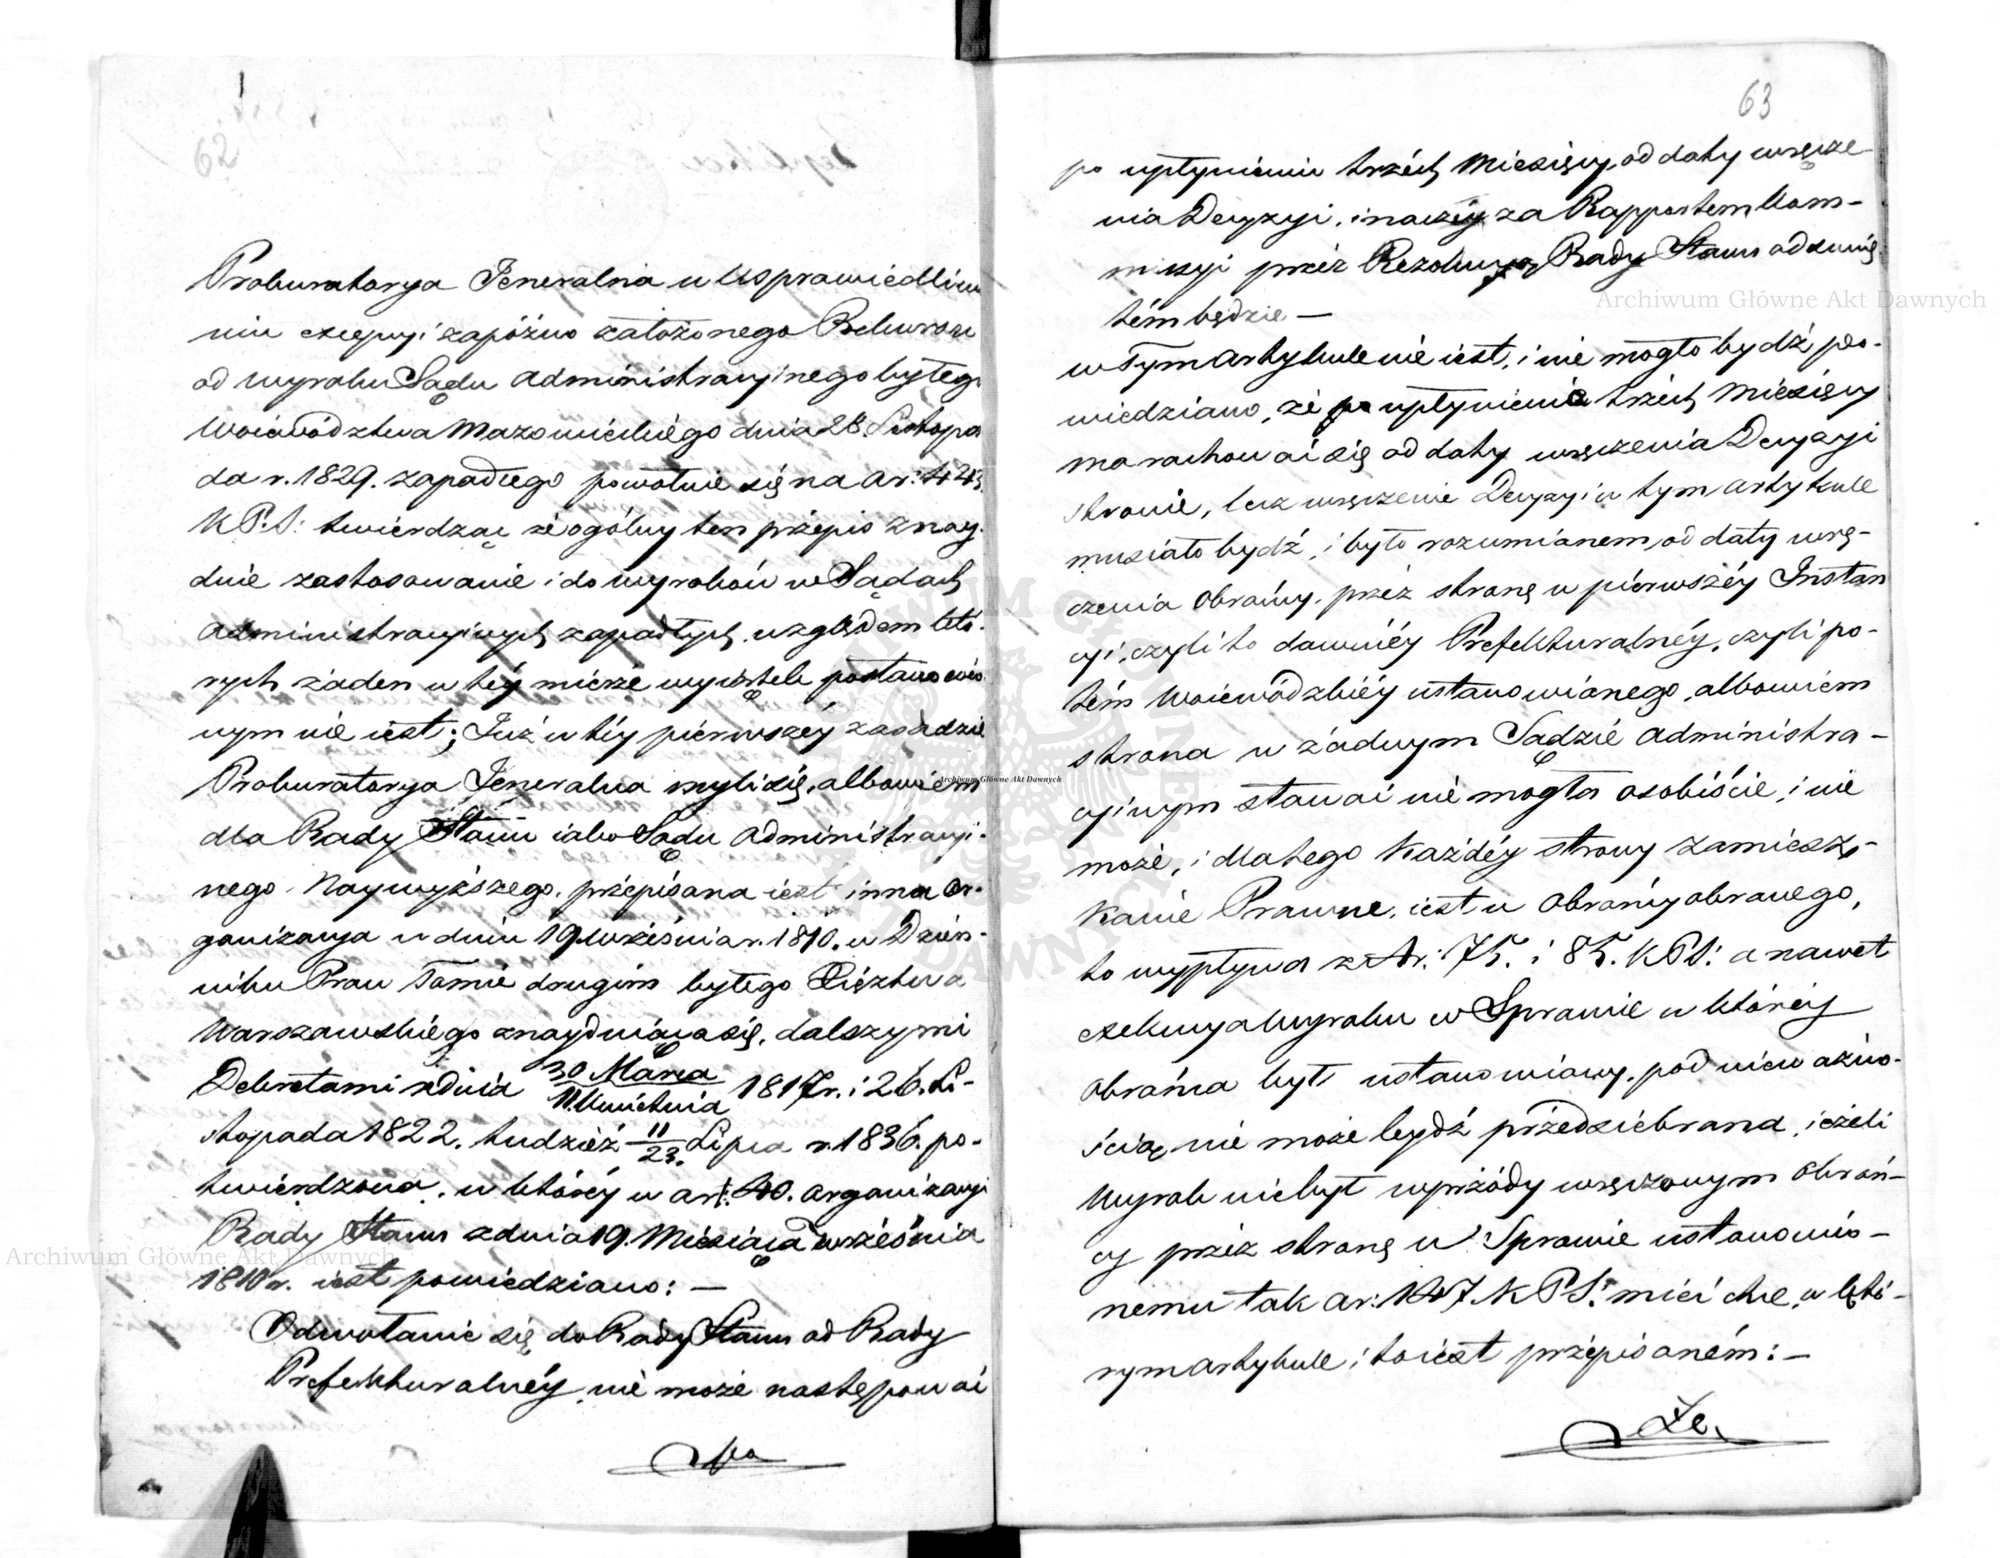 62
Prokuratorya Jeneralna w Usprawiedliwie
niu excepcyi zapóźno założonego Rekursu
od wyroku Sądu Administracyinego byłego
Woiewództwa Mazowieckiego dnia 28. Listopa
da r. 1829. zapadłego powołuie się na ar: 443.
K P. S: twierdząc że ogólny ten przepis znay-
duie zastosowanie i do wyroków w Sądach
Administracyinych zapadłych, względem któ-
rych żaden w téy mierze wyiątek postanowio
nym nie iest; Już w téy pierwszéy zasadzie
Prokuratorya Jeneralna myli się, albowiem
dla Rady Stanu iako Sądu Administracyi-
nego Naywyższego, przepisana iest inna or-
ganizacya w dniu 19. Września r. 1810. w Dzien-
niku Praw Tomie drugim byłego Xięztwa
Warszawskiego znayduiąca się, dalszymi
Dekretami z dnia 30 Marca / 11. Kwietnia 1817 r. i 26. Li-
stopada 1822. tudzież 11/23. Lipca r. 1836. po-
twierdzona, w któréy w art. 40. organizacyi
Rady Stanu z dnia 19. Miesiąca Września
1810 r. iest powiedziano: —
Odwołanie się do Rady Stanu od Rady
Prefekturalnéy, nie może następować
po
63
po upłynieniu trzéch Miesięcy od daty wręcze
nia Decyzyi, inaczéy za Rapportem Kom-
missyi przéz Rezolucyą Rady Stanu odsunię
tém będzie —
w tym artykule nie iest, i nie mogło bydź po-
wiedziano, że po upłynieniu trzéch Miesięcy
ma rachować się od daty wręczenia Decyzyi
stronie, lecz wręczenie Decyzyi w tym artykule
musiało bydź, i było rozumianem, od daty wrę-
czenia Obrońcy, przéz stronę w pierwszéy Instan
cyi, czyli to dawniéy Prefekturalnéy, czyli po-
tém Woiewódzkiéy ustanowionego, albowiem
strona w żadnym Sądzie Administra-
cyinym stawać nie mogła osobiście, i nie
może, i dlatego każdéy strony zamiesz-
kanie Prawne, iest u Obrońcy obranego,
to wypływa z Ar: 75. i 85. K P S: a nawet
exekucya Wyroku w Sprawie w któréy
Obrońca był ustanowiony, pod nieważno-
ścią nie może bydź przedsiebrana, ieżeli
Wyrok nie był wprzódy wręczonym Obroń-
cy przéz stronę w Sprawie ustanowio-
nemu tak ar: 147. K P S: mieć chce, w któ-
rym artykule i to iest przepisaném: —
Że,
Archiwum Główne Akt Dawnych
Archiwum Główne Akt Dawnych
Archiwum Główne Akt Dawnych
ARCHIWUM GŁÓWNE AKT DAWNYCH